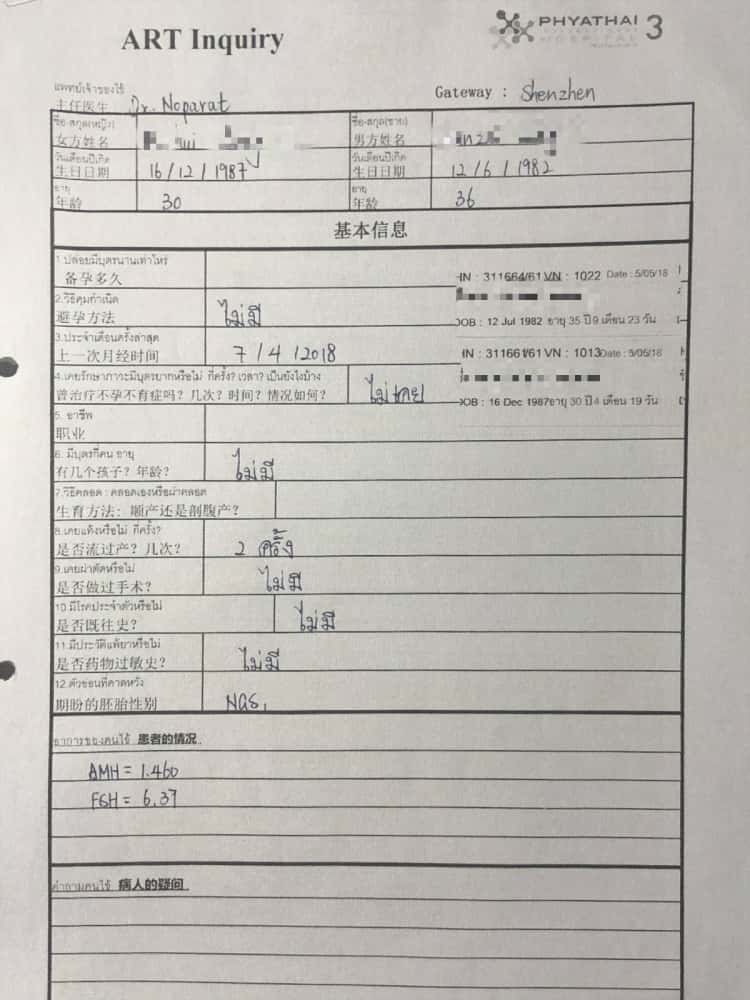 ART Inquiry
PHYATHAI 3
แพทย์เจ้าของไข้
主任医生 Dr. Noparat
Gateway : Shenzhen
ชื่อ-สกุล(หญิง)
女方姓名
ชื่อ-สกุล(ชาย)
男方姓名
วันเดือนปีเกิด
生日日期 16/12/1987
วันเดือนปีเกิด
生日日期 12/6/1982
อายุ
年龄 30
อายุ
年龄 36
基本信息
1.ปล่อยมีบุตรนานเท่าไหร่
备孕多久
HN : 311664/61 VN : 1022 Date : 5/05/18
DOB : 12 Jul 1982 อายุ 35 ปี 9 เดือน 23 วัน
2.วิธีคุมกำเนิด
避孕方法 ไม่มี
3.ประจำเดือนครั้งล่าสุด
上一次月经时间 7/4/2018
HN : 311661/61 VN : 1013 Date : 5/05/18
DOB : 16 Dec 1987 อายุ 30 ปี 4 เดือน 19 วัน
4.เคยรักษาภาวะมีบุตรยากหรือไม่ กี่ครั้ง? เวลา? เป็นยังไงบ้าง
曾治疗不孕不育症吗？几次？时间？情况如何？ ไม่เคย
5. อาชีพ
职业
6. มีบุตรกี่คน อายุ
有几个孩子？年龄？ ไม่มี
7.วิธีคลอด : คลอดเองหรือผ่าคลอด
生育方法：顺产还是剖腹产？
8.เคยแท้งหรือไม่ กี่ครั้ง?
是否流过产？几次？ 2 ครั้ง
9.เคยผ่าตัดหรือไม่
是否做过手术？ ไม่มี
10.มีโรคประจำตัวหรือไม่
是否既往史？ ไม่มี
11.มีประวัติแพ้ยาหรือไม่
是否药物过敏史？ ไม่มี
12.ตัวอ่อนที่คาดหวัง
期盼的胚胎性别 NGS,
อาการของคนไข้ 患者的情况
AMH = 1.460
FSH = 6.37
คำถามคนไข้ 病人的疑问